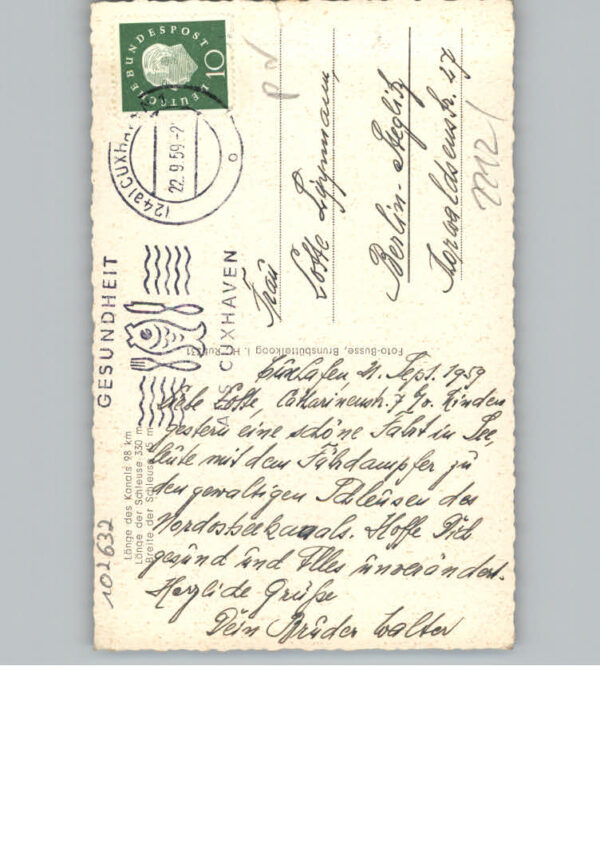 DEUTSCHE BUNDESPOST
10
(24a) CUXHAVEN
22.9.59-2
GESUNDHEIT
AUS CUXHAVEN
Frau
Lotte
Berlin-Steglitz
Torwaldsenstr. 27
Foto-Busse, Brunsbüttelkoog i. H., Ruf 731
Länge des Kanals 98 km
Länge der Schleuse 330 m
Breite der Schleuse 45 m
102632
Cuxhafen, 21. Sept. 1959
Liebe Lotte, Catharinenstr. 7
gestern eine schöne Fahrt in See,
heute mit dem Fährdampfer zu
den gewaltigen Schleusen des
Nordostseekanals. Hoffe Dich
gesund und Alles unverändert.
Herzliche Grüße
Dein Bruder Walter